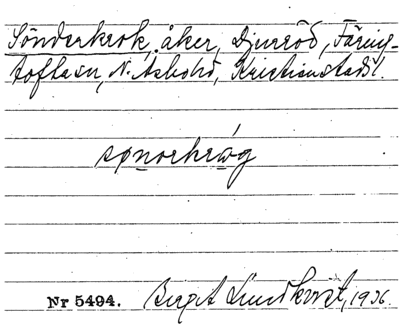 Sönderkrok, åker, Djurröd, Färing-
toftasn, N. Åsbohd, Kristianstads l.
sønorkråg
Nr 5494. Birgit Lundkvist, 1936.